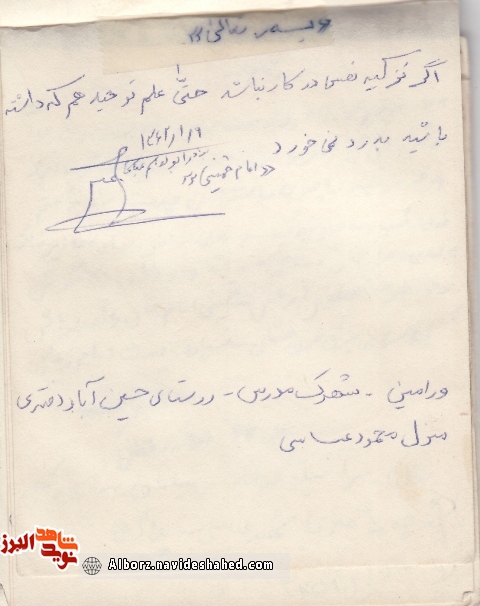 بسمه تعالی
اگر تزکیه نفس در کار نباشد حتی علم توحید هم که داشته
باشید بدرد نمی خورد
«امام خمینی»
ورامین - شهرک مدرس - روستای حسین آباد
منزل محمود عباسی
نوید شاهد البرز
Alborz.navideshahed.com